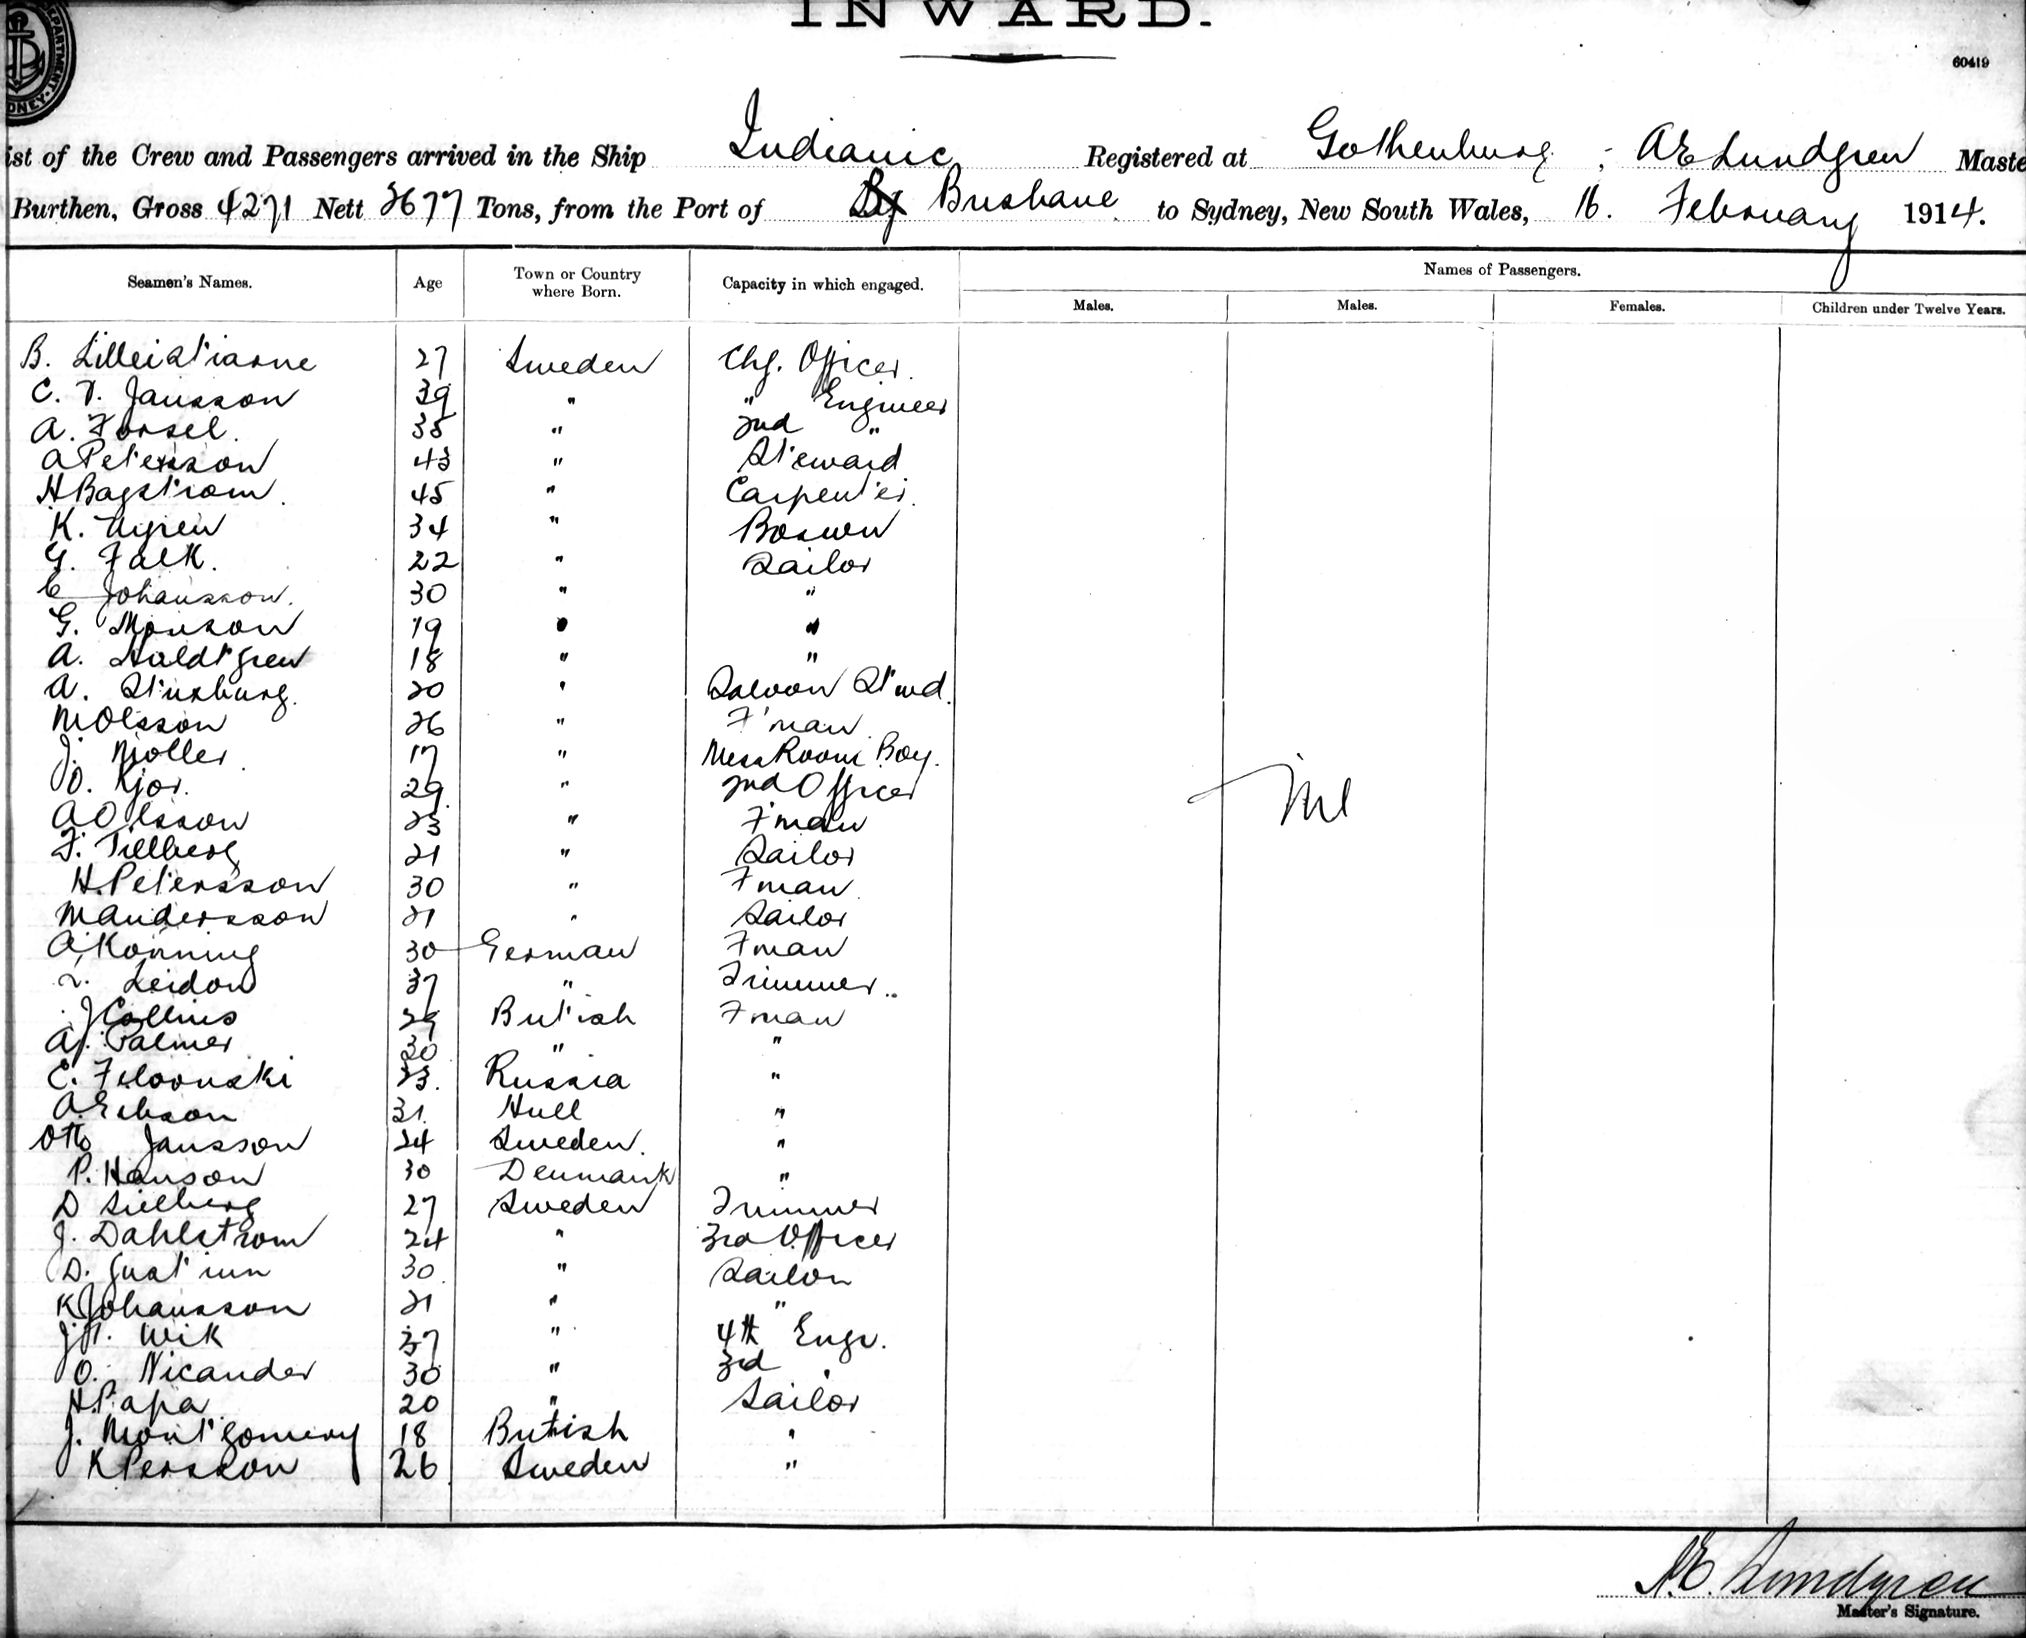 INWARD.
60419
ist of the Crew and Passengers arrived in the Ship Indianic Registered at Gothenburg, A E Lundgren Maste
Burthen, Gross 4271 Nett 2677 Tons, from the Port of Brisbane to Sydney, New South Wales, 16. February 1914.
Seamen's Names. Age Town or Country where Born. Capacity in which engaged. Names of Passengers.
Males. Males. Females. Children under Twelve Years.
B. 27 Sweden Chf. Officer
C. Jansson 39 " " Engineer
A. Forsel. 35 " 2nd "
A Petersson 43 " Steward
H Bagstrom. 45 " Carpenter.
K. Nyren 34 " Boswn
G. Falk. 22 " Sailor
C Johansson. 30 " "
G. Monson 19 " "
A. Huldtgren 18 " "
A. 20 " Saloon Stwd.
M Olsson 26 " F'man
J. Moller 17 " Mess Room Boy.
O. Kjor. 29 " 2nd Officer
A Olsson 23 " F'man
F. Tillberg 21 " Sailor
H. Petersson 30 " Fman
M Andersson 21 " Sailor
A. Konning 30 German Fman
Leidon 37 " Trimmer
J Collins 29 British Fman
A. Palmer 30 " "
E. 23. Russia "
A. Erikson 31. Hull "
Otto Jansson 24 Sweden. "
P. Hanson 30 Denmark "
D 27 Sweden Trimmer
J. Dahlstrom 24 " 3rd Officer
D. 30 " Sailor
K Johansson 21 " "
Wik 37 " 4th Engr.
O. Nicander 30 " 3rd "
H. Papa 20 " Sailor
J. Montgomery 18 British "
K Persson 26 Sweden "
Nil
A. E. Lundgren
Master's Signature.